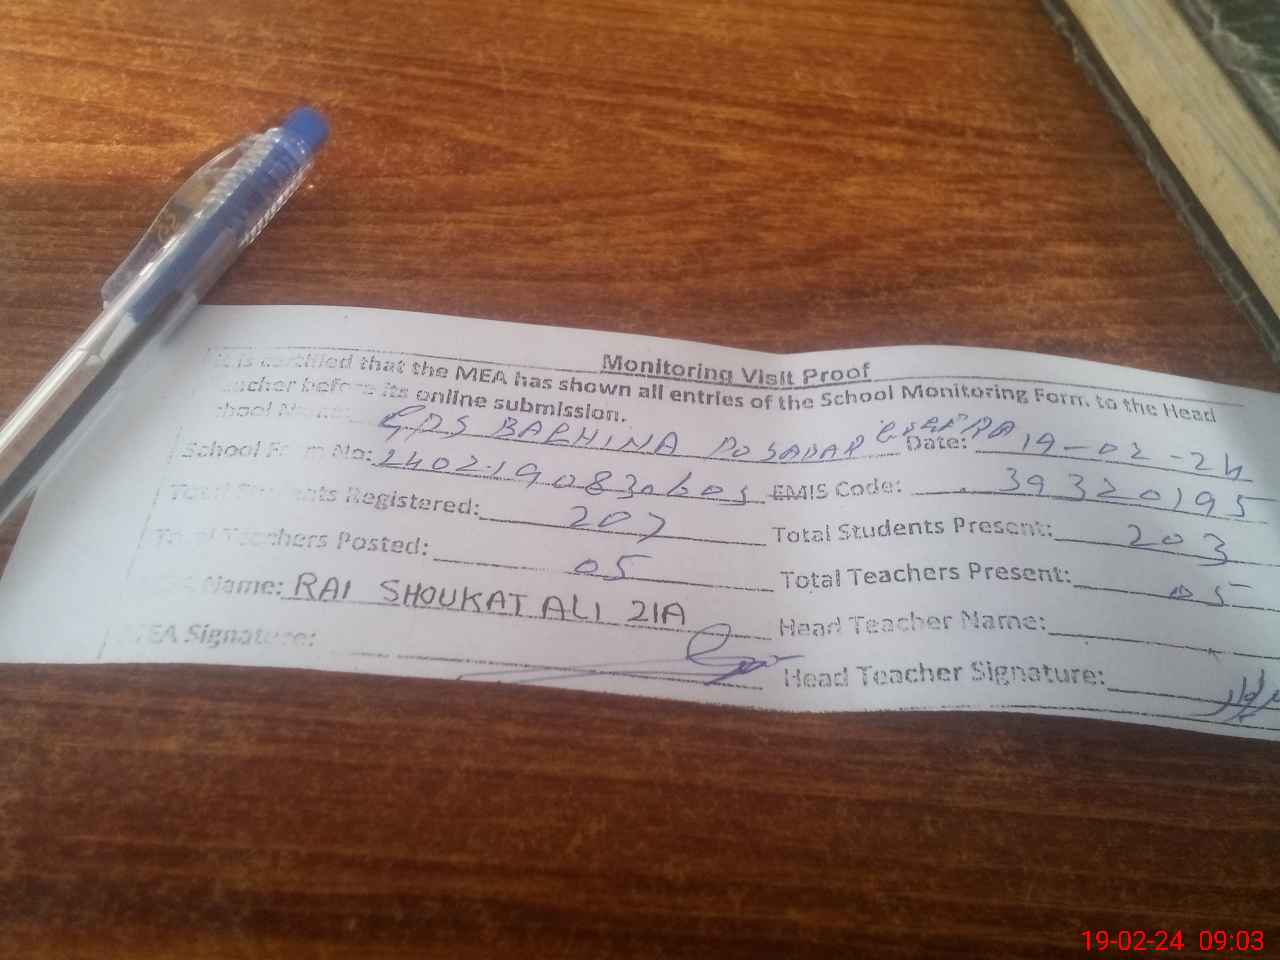 Monitoring Visit Proof
It is certified that the MEA has shown all entries of the School Monitoring Form to the Head
Teacher before its online submission.
School Name: GPS BAKHINA PO SADAR Date: 19-02-24
School Form No: EMIS Code: 39320195
Total Students Registered: 207 Total Students Present: 203
Total Teachers Posted: 05 Total Teachers Present: 05
Name: RAI SHOUKAT ALI 21A Head Teacher Name:
MEA Signature: Head Teacher Signature:
19-02-24 09:03